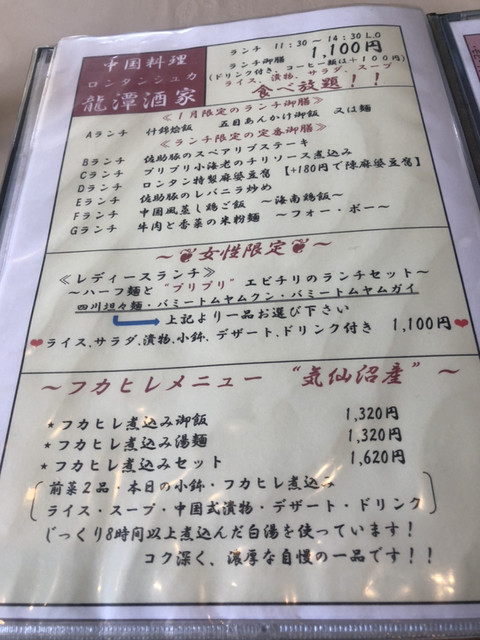 中国料理
ロンタンシュカ
龍潭酒家
ランチ 11:30～14:30 L.O
ランチ御膳 1,100円
(ドリンク付き、コーヒー麺は+100円)
ライス、漬物、サラダ、スープ
食べ放題！！
≪1月限定のランチ御膳≫
Aランチ 什錦燴飯 五目あんかけ御飯 又は麺
≪ランチ限定の定番御膳≫
Bランチ 佐助豚のスペアリブステーキ
Cランチ プリプリ小海老のチリソース煮込み
Dランチ ロンタン特製麻婆豆腐 【+180円で陳麻婆豆腐】
Eランチ 佐助豚のレバニラ炒め
Fランチ 中国風蒸し鶏ご飯 ～海南鶏飯～
Gランチ 牛肉と香菜の米粉麺 ～フォー・ボー～
～女性限定～
≪レディースランチ≫
～ハーフ麺と"プリプリ"エビチリのランチセット～
四川坦々麺・バミートムヤムクン・バミートムヤムガイ
上記より一品お選び下さい
❤ライス、サラダ、漬物、小鉢、デザート、ドリンク付き 1,100円❤
～フカヒレメニュー "気仙沼産"～
*フカヒレ煮込み御飯 1,320円
*フカヒレ煮込み湯麺 1,320円
*フカヒレ煮込みセット 1,620円
前菜2品・本日の小鉢・フカヒレ煮込み
ライス・スープ・中国式漬物・デザート・ドリンク
じっくり8時間以上煮込んだ白湯を使っています！
コク深く、濃厚な自慢の一品です！！